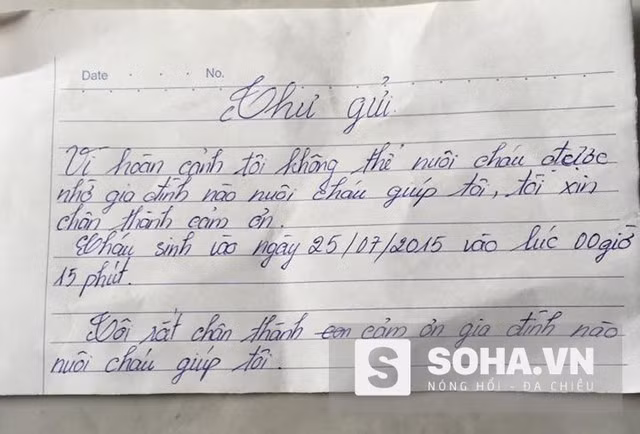 Date . . . No.
Thư gửi.
Vì hoàn cảnh tôi không thể nuôi cháu được
nhờ gia đình nào nuôi cháu giúp tôi, tôi xin
chân thành cảm ơn.
Cháu sinh vào ngày 25/07/2015 vào lúc 00giờ
15 phút.
Tôi rất chân thành cảm ơn gia đình nào
nuôi cháu giúp tôi.
S SOHA.VN
NÓNG HỔI - ĐA CHIỀU